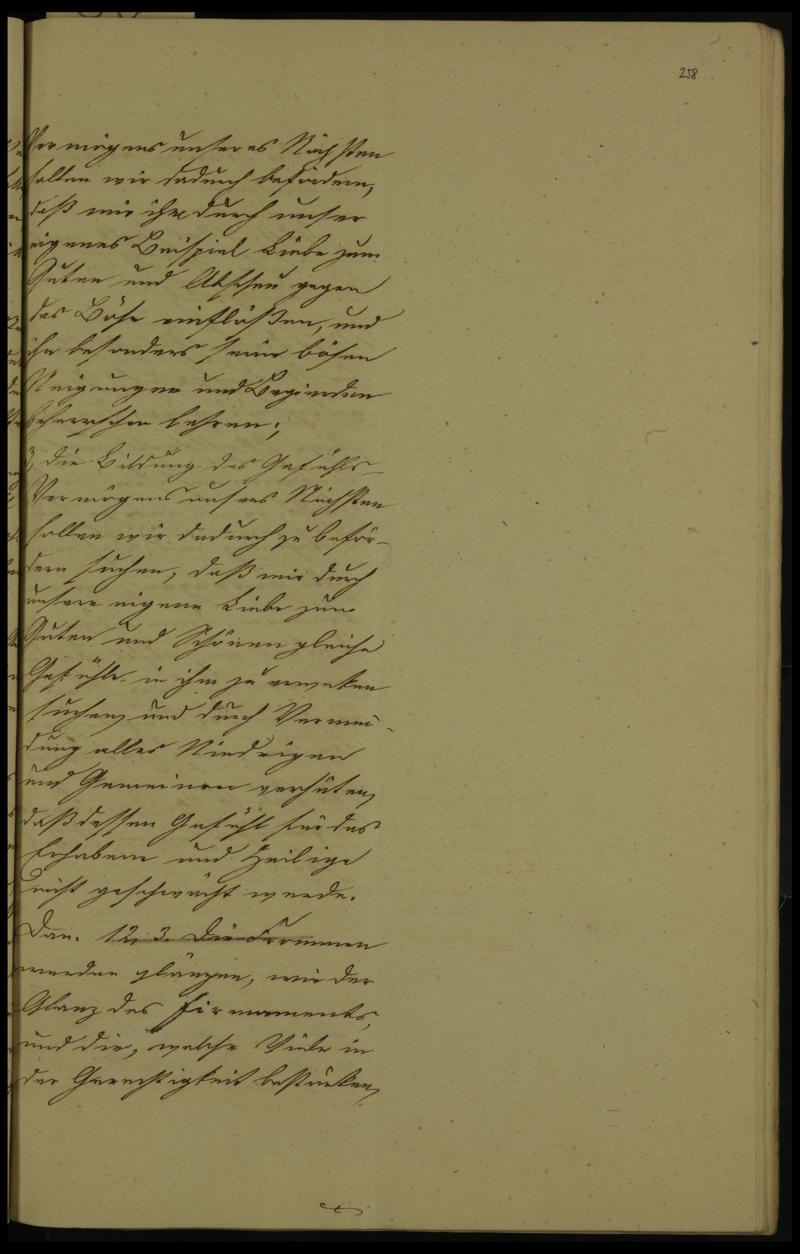 258
Vermögens unseres Nächsten
sollen wir dadurch befördern,
daß wir ihm durch unser
eigenes Beispiel Liebe zum
Guten und Abscheu gegen
das Böse einflößen, und
ihn besonders seine bösen
Neigungen und Begierden
beherrschen lehren;
3, die Bildung des Gefühls-
Vermögens unsres Nächsten
sollen wir dadurch zu beför-
dern suchen, daß wir durch
unsere eigene Liebe zum
Guten und Schönen gleiche
Gefühle in ihm zu erweken
suchen, und durch Vermei-
dung alles Niedrigen
und Gemeinen verhüten,
daß dessen Gefühl für das
Erhabene und Heilige
nicht geschwächt werde.
Dan. 12, 3. Die Frommen
werden glänzen, wie der
Glanz des Firmaments,
und die, welche Viele in
der Gerechtigkeit bestärken,